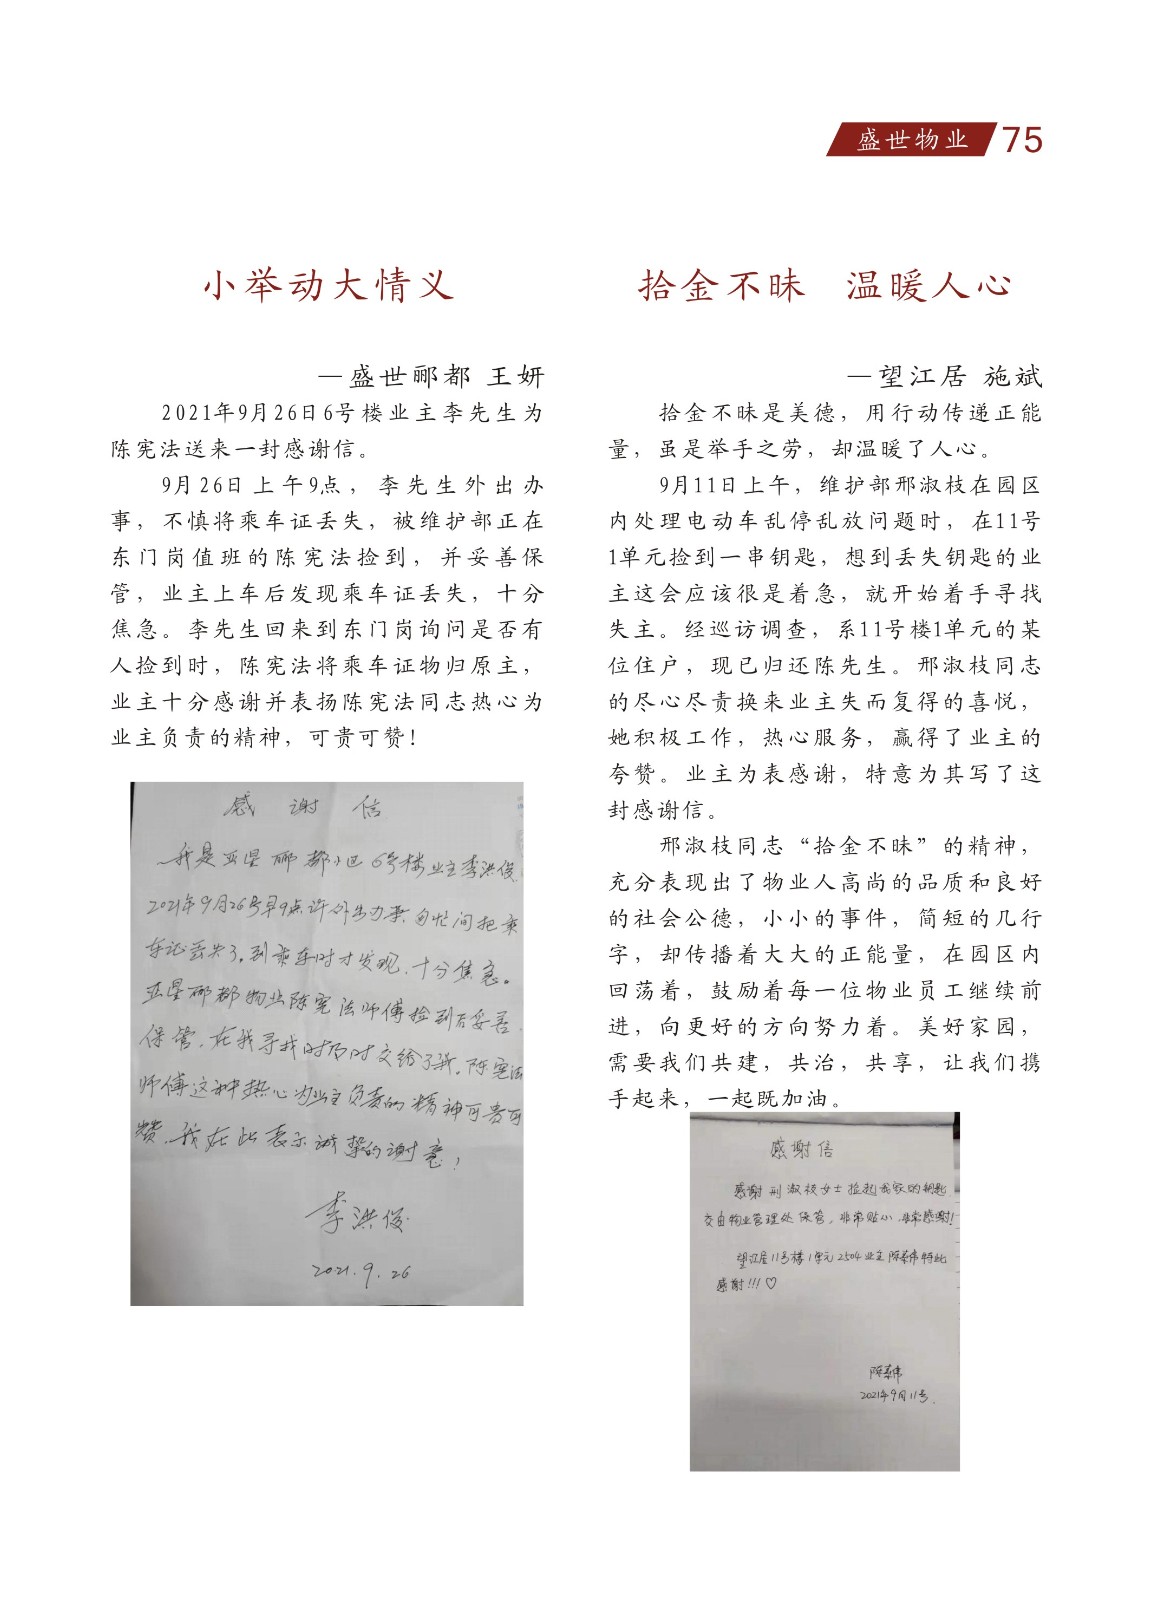 盛世物业 75
小举动大情义
—盛世郦都 王妍
2021年9月26日6号楼业主李先生为
陈宪法送来一封感谢信。
9月26日上午9点，李先生外出办
事，不慎将乘车证丢失，被维护部正在
东门岗值班的陈宪法捡到，并妥善保
管，业主上车后发现乘车证丢失，十分
焦急。李先生回来到东门岗询问是否有
人捡到时，陈宪法将乘车证物归原主，
业主十分感谢并表扬陈宪法同志热心为
业主负责的精神，可贵可赞！
感谢信
我是亚星郦都小区6号楼业主李洪俊
2021年9月26号早9点许外出办事匆忙间把乘
车证丢失了。到乘车时才发现、十分焦急。
亚星郦都物业陈宪法师傅捡到后妥善
保管，在我寻找时及时交给了我。陈宪法
师傅这种热心为业主负责的精神可贵可
赞，我在此表示诚挚的谢意！
李洪俊
2021.9.26
拾金不昧 温暖人心
—望江居 施斌
拾金不昧是美德，用行动传递正能
量，虽是举手之劳，却温暖了人心。
9月11日上午，维护部邢淑枝在园区
内处理电动车乱停乱放问题时，在11号
1单元捡到一串钥匙，想到丢失钥匙的业
主这会应该很是着急，就开始着手寻找
失主。经巡访调查，系11号楼1单元的某
位住户，现已归还陈先生。邢淑枝同志
的尽心尽责换来业主失而复得的喜悦，
她积极工作，热心服务，赢得了业主的
夸赞。业主为表感谢，特意为其写了这
封感谢信。
邢淑枝同志“拾金不昧”的精神，
充分表现出了物业人高尚的品质和良好
的社会公德，小小的事件，简短的几行
字，却传播着大大的正能量，在园区内
回荡着，鼓励着每一位物业员工继续前
进，向更好的方向努力着。美好家园，
需要我们共建，共治，共享，让我们携
手起来，一起既加油。
感谢信
感谢刑淑枝女士捡起我家的钥匙
交由物业管理处保管，非常贴心，非常感谢！
望江居11号楼1单元2504业主陈 伟特此
感谢!!!♡
陈 伟
2021年9月11号.